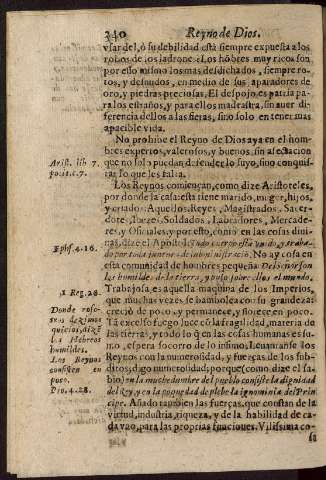 340 Reyno de Dios.
vsar del, ò su debilidad està siempre expuesta a los
robos de los ladrones. Los hõbres muy ricos son
por esso mismo los mas desdichados, siempre ro-
tos, y desnudos, en medio de sus aparadores de
oro, y piedras preciosas. El despojo es patria pa-
ra los estraños, y para ellos madrastra, sin auer di-
ferencia dellos a las fieras, sino solo en tener mas
apacible vida.
No prohibe el Reyno de Dios aya en el hom-
bres expertos, valerosos, y buenos, sin afectacion
que no solo puedan defender lo suyo, sino conquis-
tar lo que les falta.
Arist. lib 7.
polit. c. 7.
Los Reynos comiençan, como dize Aristoteles,
por donde la casa: esta tiene marido, muger, hijos,
y criados: Aquellos, Reyes, Magistrados, Sacer-
dotes, Iuezes, Soldados, Labradores, Mercade-
res, y Oficiales, y por esto, como en las cosas diui-
nas, dize el Apostol,
Ephs. 4. 16.
do por toda juntura de subministracion. No ay cosa en
esta comunidad de hombres pequeña. De los
humildes de la tierra, y puso sobre ellos el mundo.
1 Reg. 28
Trabajosa es aquella maquina de los Imperios,
que muchas vezes se bambolea con su grandeza:
creciò de poco, y permanece, y florece en poco.
Tã excelso fuego luce cõ la fragilidad, materia de
las tierras, y todo lo q̃ en las cosas humanas es su-
mo, espera socorro de lo infimo. Leuantanse los
Reynos con la numerosidad, y fuerças de los sub-
ditos; digo numerosidad, porque (como dize el sa-
bio) en la muchedumbre del pueblo consiste la dignidad
del Rey, y en la poquedad de plebe la ignominia del Prin-
cipe. Añado tambien las fuerças, que constan de la
virtud, industria, riqueza, y de la habilidad de ca-
da vno, para las proprias funciones. Vilissima co-
sa
Los Reynos
consisten en
poco.
Pro. 4. 28.